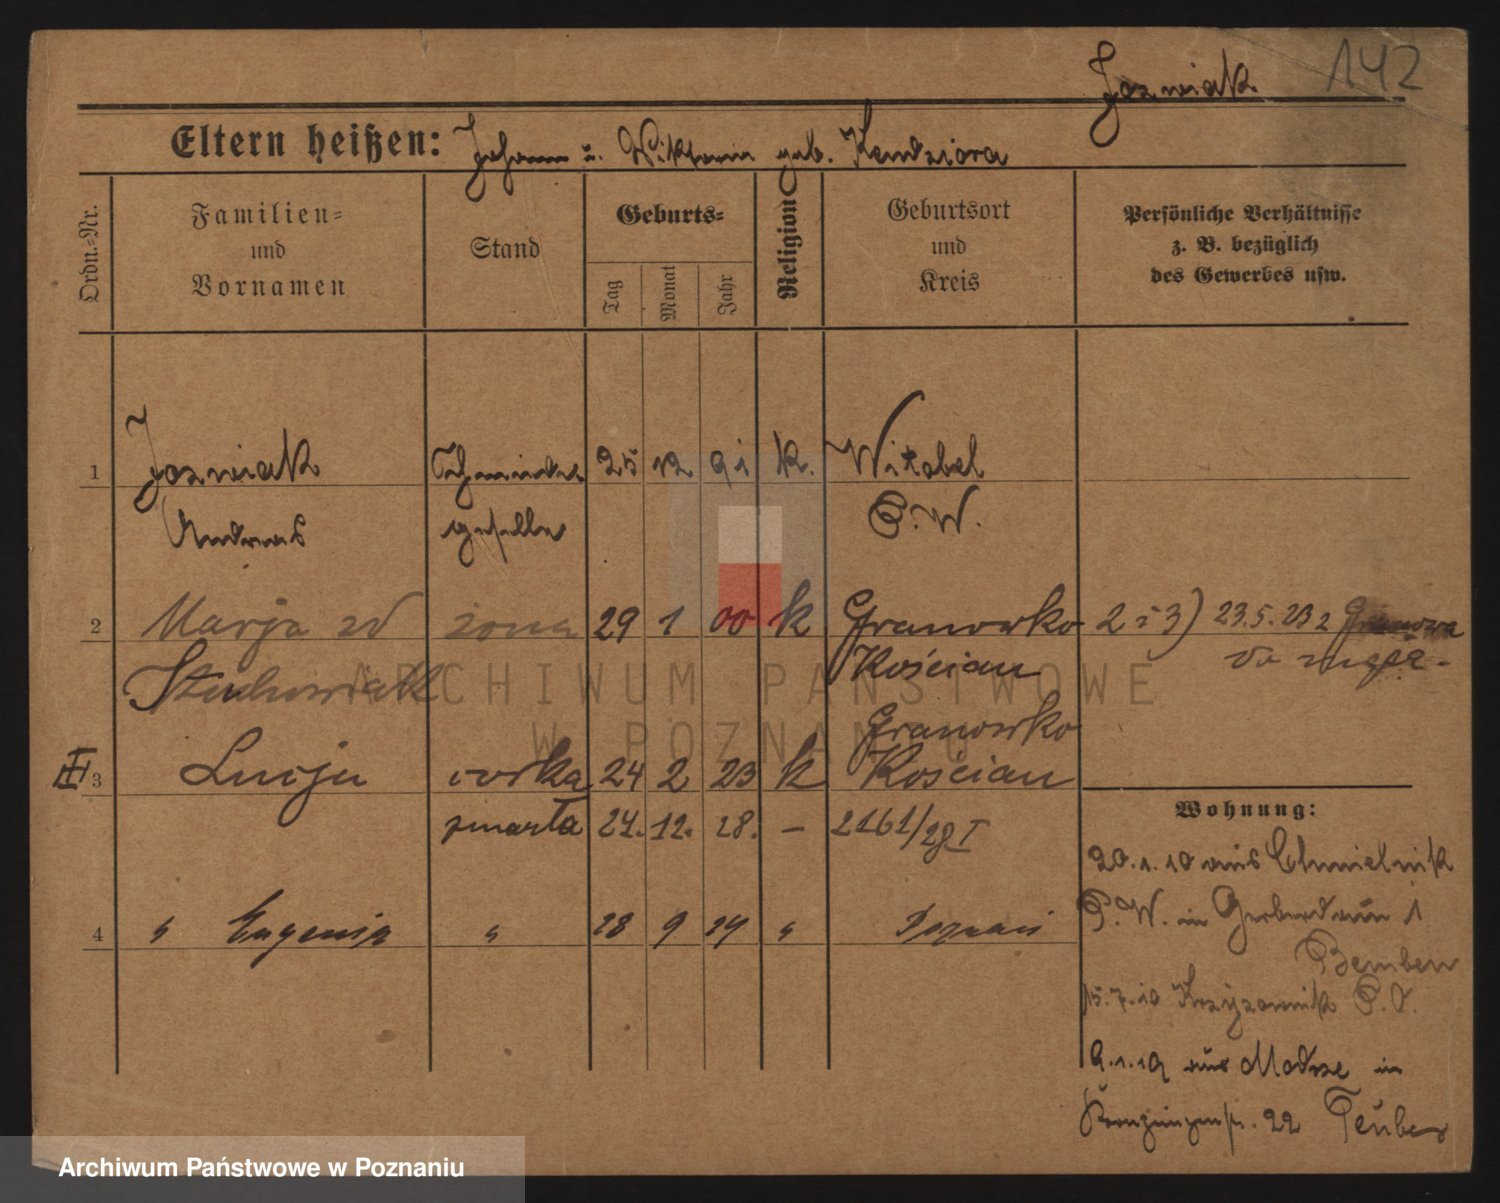 142
Jozwiak
Eltern heißen: Johann u. Wiktoria geb. Kendziora
Ordn.=Nr.
Familien=
und
Vornamen
Stand
Geburts=
Tag
Monat
Jahr
Religion
Geburtsort
und
Kreis
Persönliche Verhältnisse
z. B. bezüglich
des Gewerbes usw.
1 Jozwiak Schmiede- 25 12 91 K. Witobel
Andreas geselle P. W.
2 Marja zd żona 29 1 00 k Granowko 2 i 3) 23.5.23 z Granowa
Stachowiak Kościan do męża.
Granowko
3 Lucja córka 24 2 23 k Kościan
zmarła 24. 12. 28. — 2161/28 I
4 " Eugenja " 28 9 24 " Poznań
Wohnung:
20.1.10 aus Chmielnik
P. W. in 1
Bemben
15.7.10 Krzyzownik P. O.
9.1.19 aus Modrze in
22 Teuber
ARCHIWUM PAŃSTWOWE
W POZNANIU
Archiwum Państwowe w Poznaniu